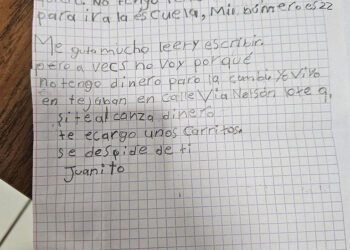 No tengo
para ir a la escuela, Mi número es 22
Me gusta mucho leer y escribir
pero a vecs no voy porqué
no tengo dinero para la combi, yo vivo
en tejaban en Calle Vía Nelsón lote 9,
si te alcanza dinero
te ecargo unos carritos.
se despide de ti
Juanito